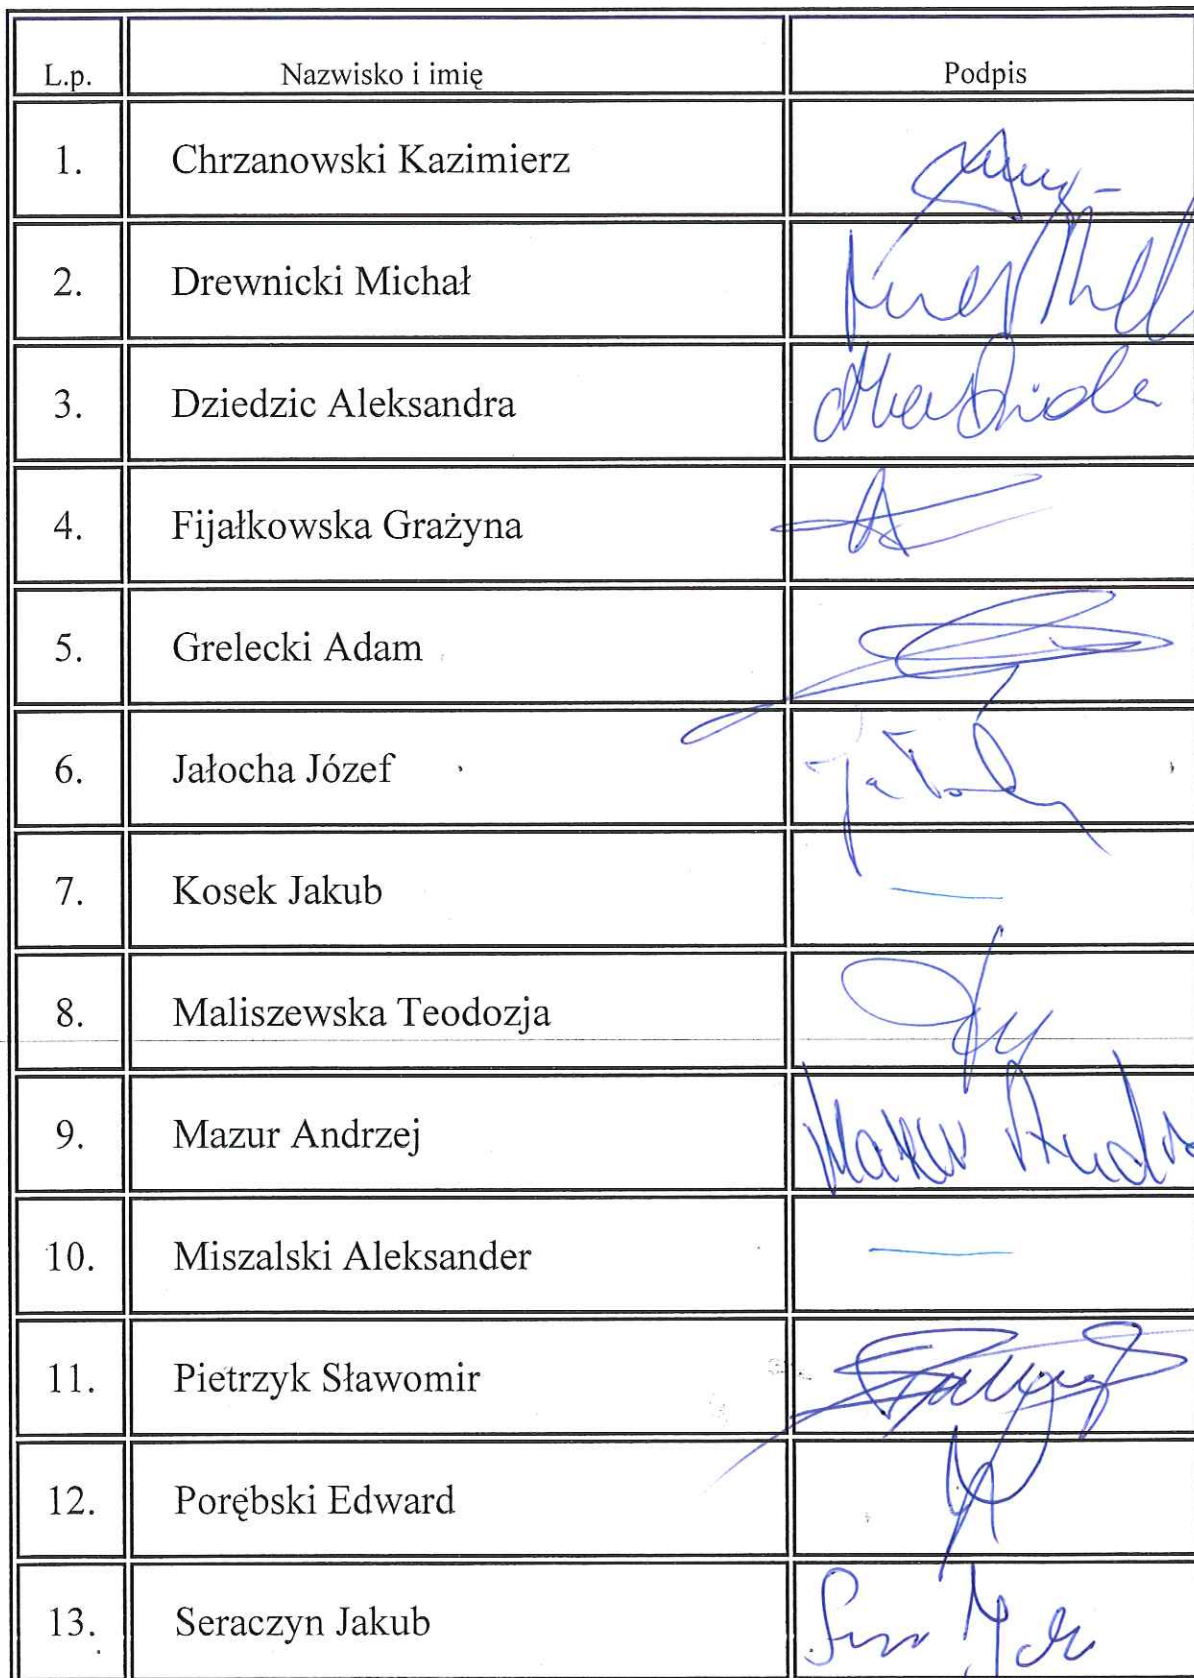 L.p. Nazwisko i imię Podpis
1. Chrzanowski Kazimierz
2. Drewnicki Michał
3. Dziedzic Aleksandra
4. Fijałkowska Grażyna
5. Grelecki Adam
6. Jałocha Józef
7. Kosek Jakub —
8. Maliszewska Teodozja
9. Mazur Andrzej Mazur
10. Miszalski Aleksander —
11. Pietrzyk Sławomir
12. Porębski Edward
13. Seraczyn Jakub